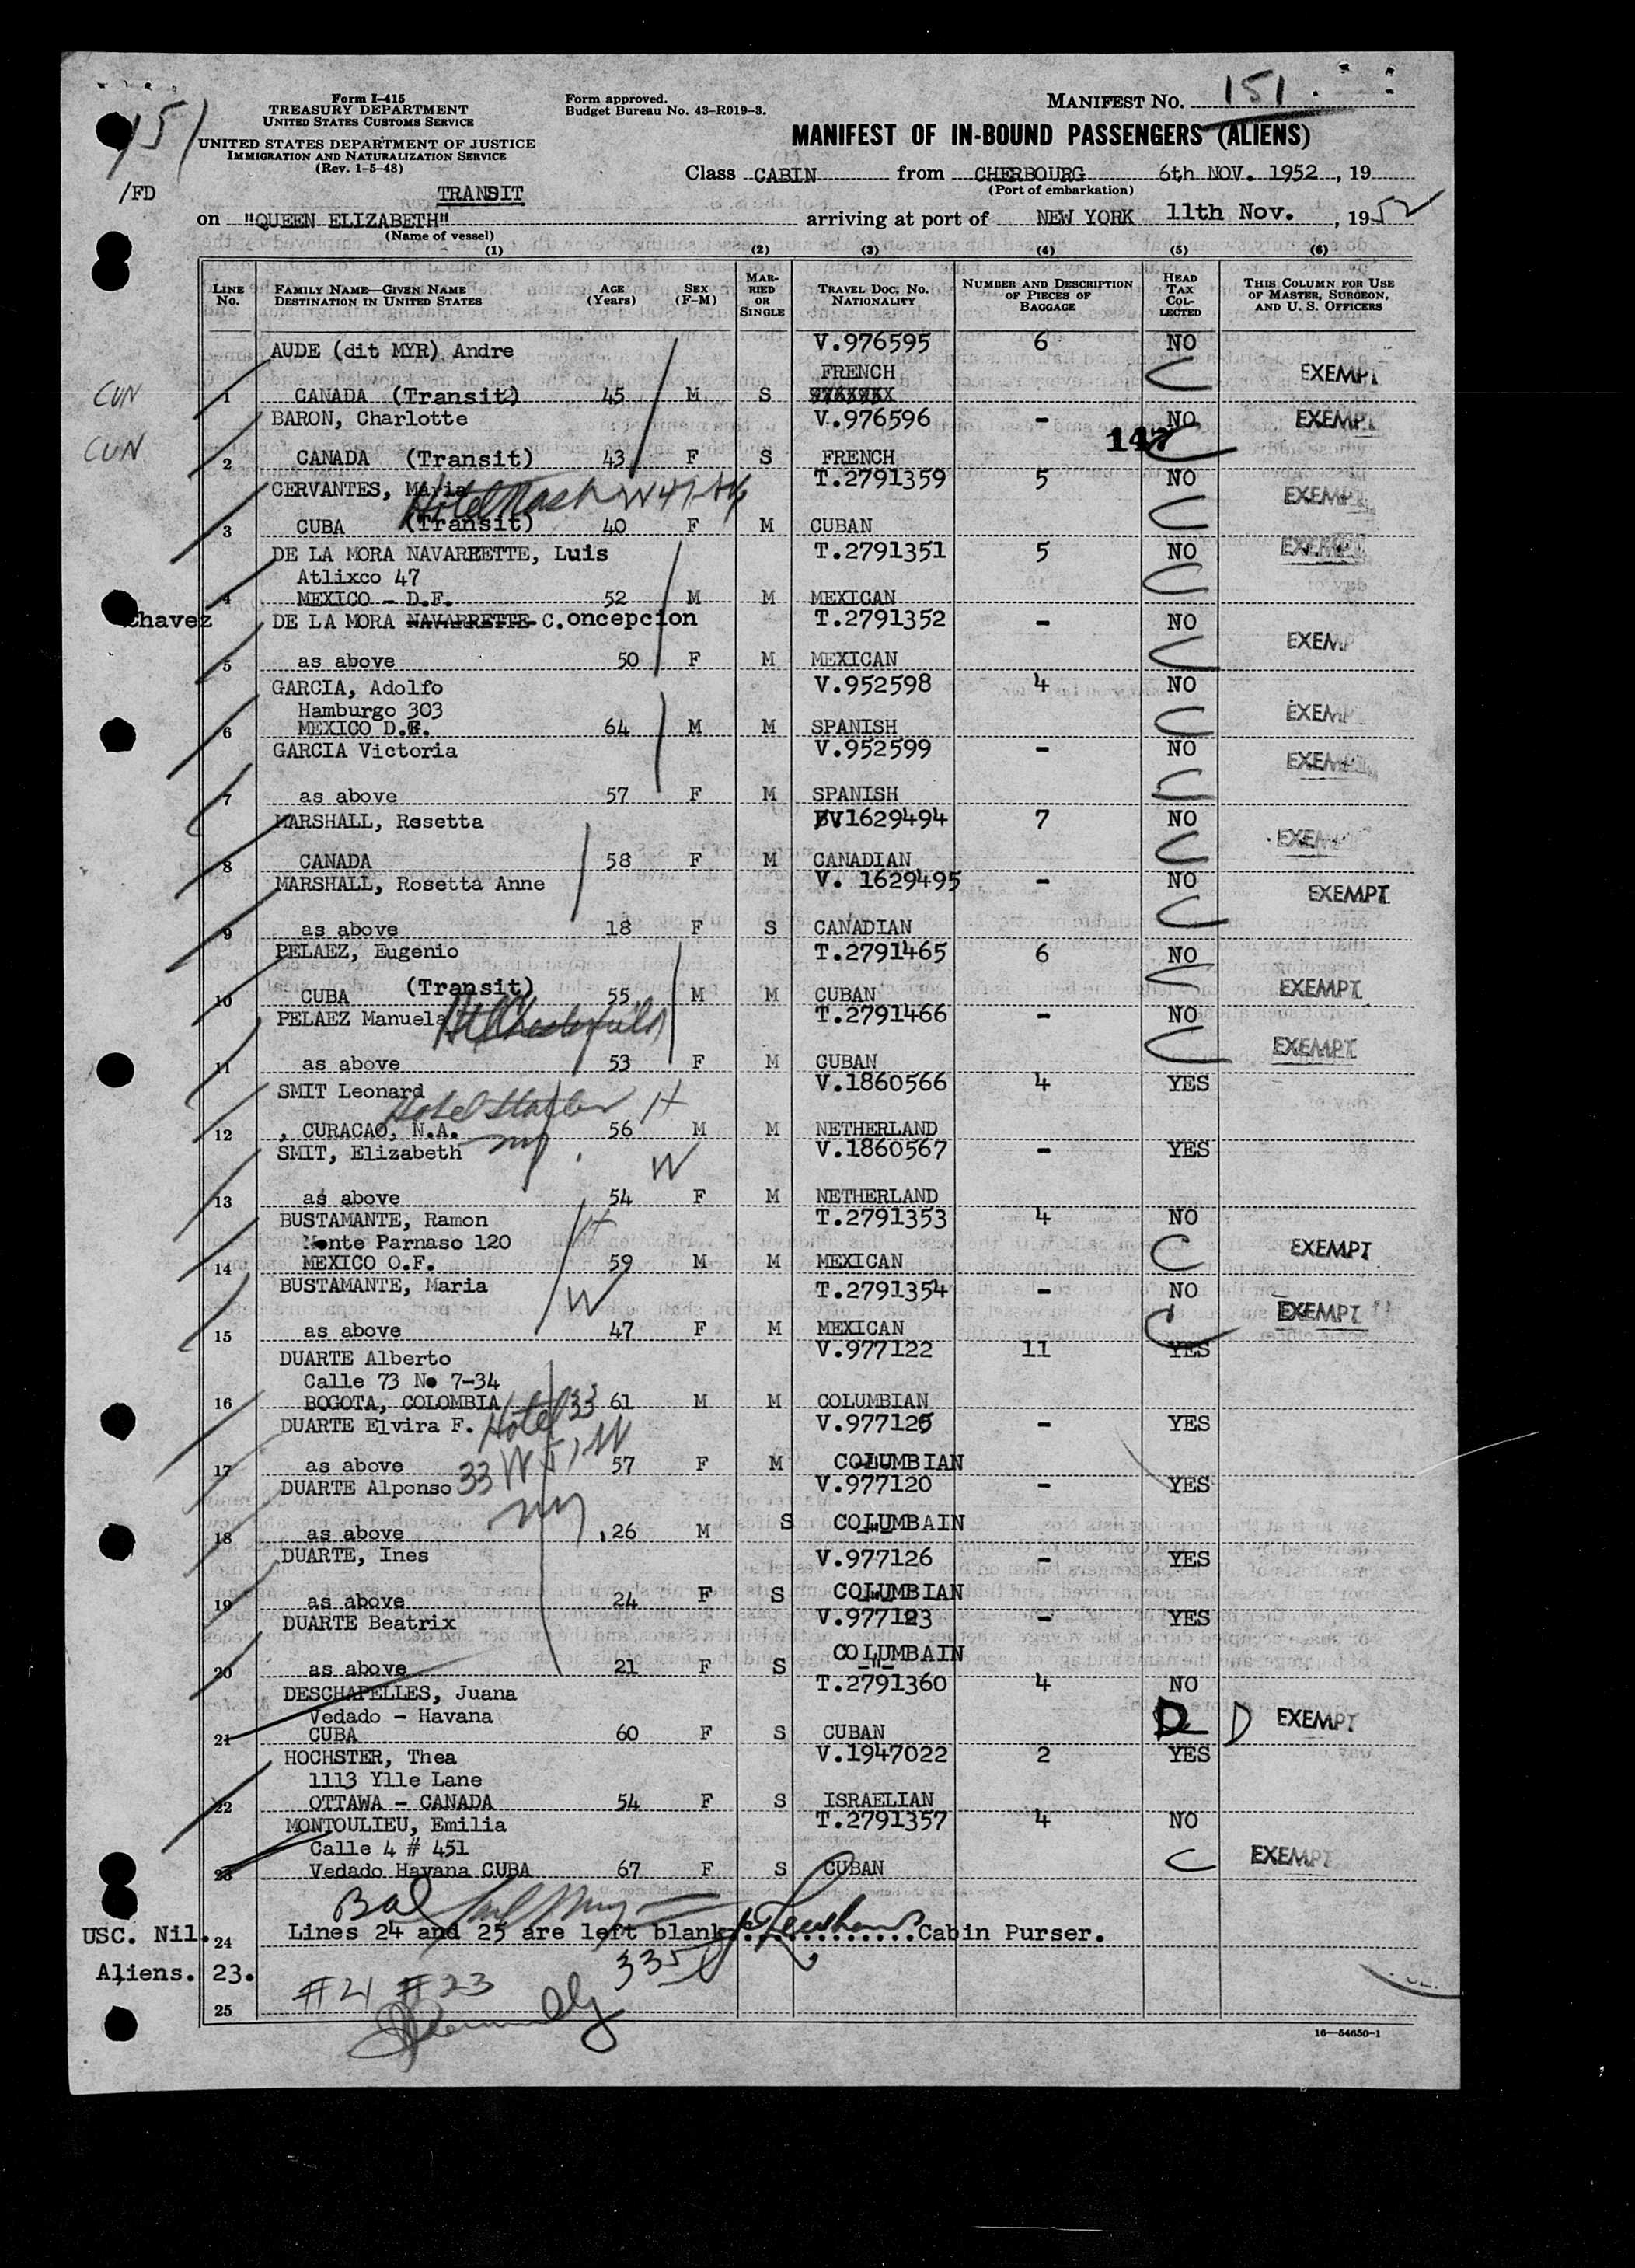 151
Form I-415
TREASURY DEPARTMENT
UNITED STATES CUSTOMS SERVICE
UNITED STATES DEPARTMENT OF JUSTICE
IMMIGRATION AND NATURALIZATION SERVICE
(Rev. 1-5-48)
Form approved.
Budget Bureau No. 43-R019-3.
MANIFEST NO. 151
MANIFEST OF IN-BOUND PASSENGERS (ALIENS)
Class CABIN from CHERBOURG 6th NOV. 1952, 19
(Port of embarkation)
/FD
TRANSIT
on "QUEEN ELIZABETH" arriving at port of NEW YORK 11th Nov., 1952
(Name of vessel)
(1) (2) (3) (4) (5) (6)
LINE No. FAMILY NAME—GIVEN NAME DESTINATION IN UNITED STATES AGE (Years) SEX (F-M) MARRIED OR SINGLE TRAVEL DOC. NO. NATIONALITY NUMBER AND DESCRIPTION OF PIECES OF BAGGAGE HEAD TAX COLLECTED THIS COLUMN FOR USE OF MASTER, SURGEON, AND U. S. OFFICERS
AUDE (dit MYR) Andre V.976595 6 NO
FRENCH C EXEMPT
CUN 1 CANADA (Transit) 45 M S
BARON, Charlotte V.976596 - NO EXEMPT
147 C
CUN 2 CANADA (Transit) 43 F S FRENCH
CERVANTES, Maria T.2791359 5 NO EXEMPT
Hotel W 47
3 CUBA (Transit) 40 F M CUBAN C
DE LA MORA NAVARRETTE, Luis T.2791351 5 NO EXEMPT
Atlixco 47 C
4 MEXICO - D.F. 52 M M MEXICAN
Chavez DE LA MORA NAVARRETTE C.oncepcion T.2791352 - NO
EXEMP
5 as above 50 F M MEXICAN C
GARCIA, Adolfo V.952598 4 NO
Hamburgo 303 EXEMP
6 MEXICO D.F. 64 M M SPANISH C
GARCIA Victoria V.952599 - NO EXEMP
7 as above 57 F M SPANISH C
MARSHALL, Rosetta V1629494 7 NO
EXEMP
8 CANADA 58 F M CANADIAN C
MARSHALL, Rosetta Anne V. 1629495 - NO EXEMPT
9 as above 18 F S CANADIAN C
PELAEZ, Eugenio T.2791465 6 NO
10 CUBA (Transit) 55 M M CUBAN C EXEMPT
PELAEZ Manuela T.2791466 - NO
11 as above 53 F M CUBAN C EXEMPT
SMIT Leonard V.1860566 4 YES
Hotel Statler H
12 , CURACAO, N.A. 56 M M NETHERLAND
SMIT, Elizabeth ny V.1860567 - YES
W
13 as above 54 F M NETHERLAND
BUSTAMANTE, Ramon H T.2791353 4 NO
Monte Parnaso 120 C EXEMPT
14 MEXICO O.F. 59 M M MEXICAN
BUSTAMANTE, Maria W T.2791354 - NO
EXEMPT
15 as above 47 F M MEXICAN C
DUARTE Alberto V.977122 11 YES
Calle 73 No 7-34
16 BOGOTA, COLOMBIA 61 M M COLUMBIAN
DUARTE Elvira F. Hotel 33 V.977125 - YES
17 as above 57 F M COLUMBIAN
DUARTE Alponso 33 W V.977120 - YES
ny
18 as above 26 M S COLUMBAIN
DUARTE, Ines V.977126 - YES
19 as above 24 F S COLUMBIAN
DUARTE Beatrix V.977123 - YES
20 as above 21 F S COLUMBAIN
DESCHAPELLES, Juana T.2791360 4 NO
Vedado - Havana D D EXEMPT
21 CUBA 60 F S CUBAN
HOCHSTER, Thea V.1947022 2 YES
1113 Ylle Lane
22 OTTAWA - CANADA 54 F S ISRAELIAN
MONTOULIEU, Emilia T.2791357 4 NO
Calle 4 # 451
23 Vedado Havana CUBA 67 F S CUBAN C EXEMPT
Bal
USC. Nil. 24 Lines 24 and 25 are left blank. Cabin Purser.
Aliens. 23. 335
#21 #23
25
16—54650-1